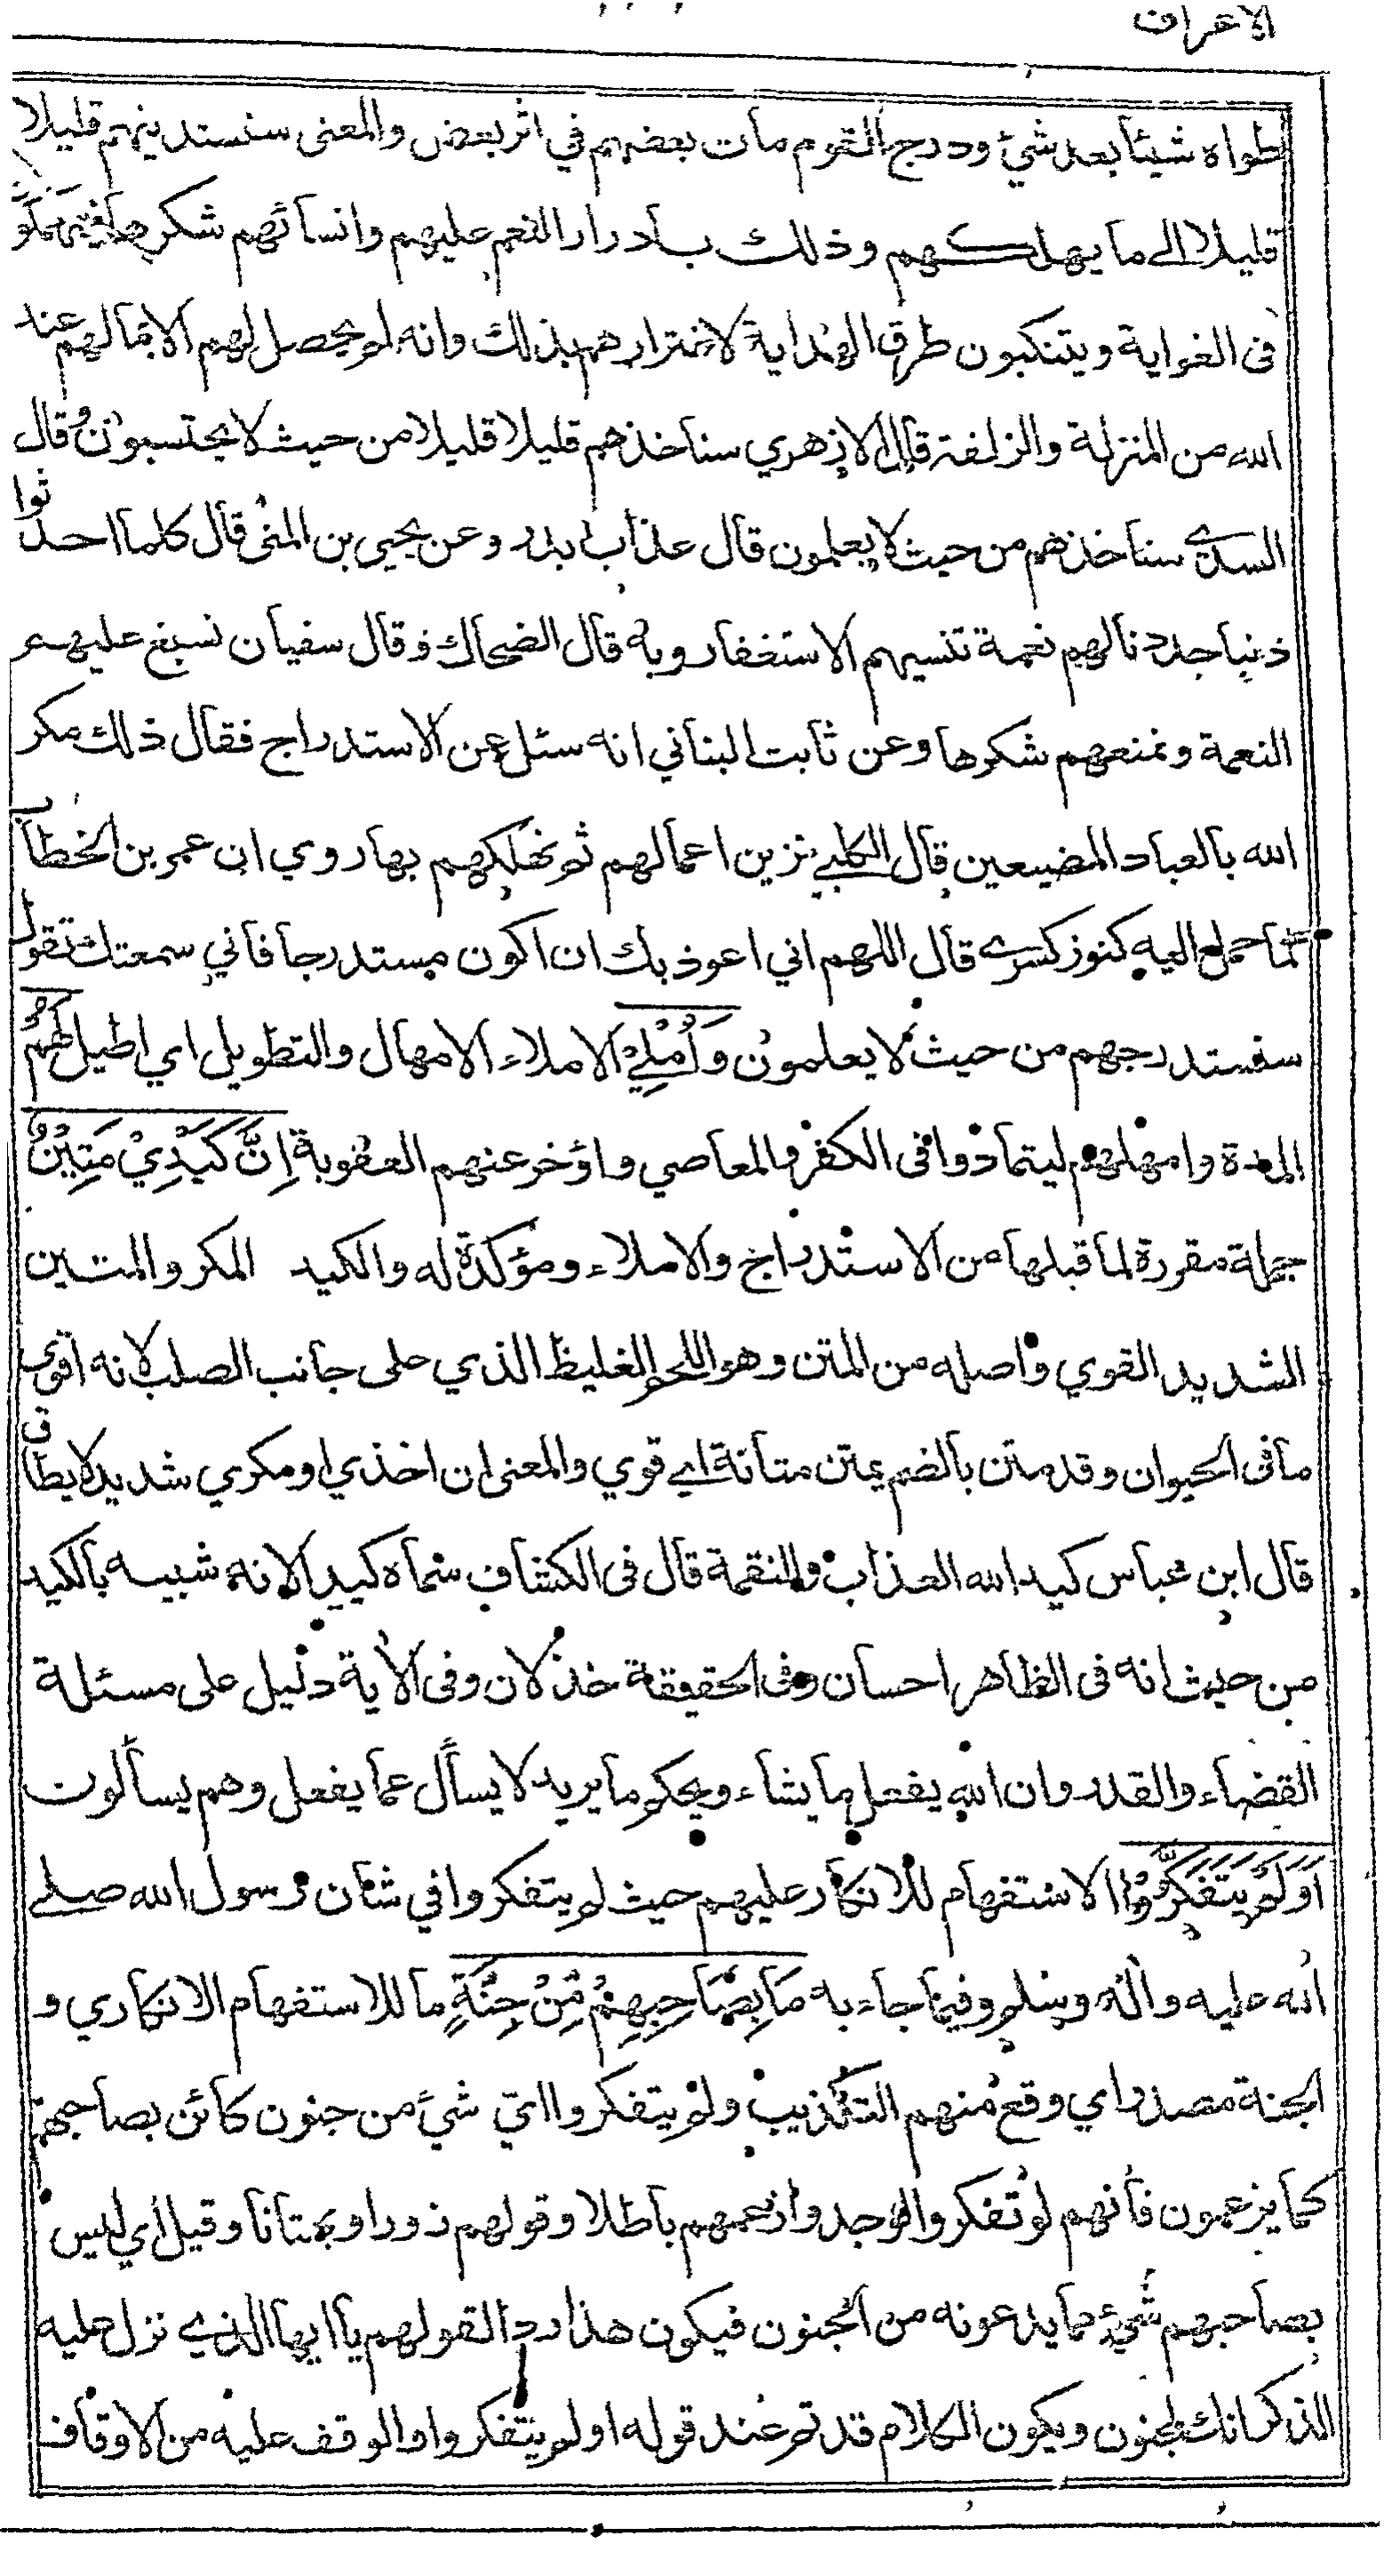 الاعراف
طواه شيئا بعد شيء ودرج القوم مات بعضهم في اثر بعض والمعنى سنستدينهم قليلا
قليلا الى ما يهلكهم وذلك بادرار النعم عليهم وانسائهم شكرها فينهمكوا
فى الغواية ويتنكبون طرق الهداية لاغترارهم بذلك وانه لم يحصل لهم الا بمالهم عند
الله من المنزلة والزلفة قال الازهري سناخذهم قليلا قليلا من حيث لا يحتسبون وقال
السدي سناخذهم من حيث لا يعلمون قال عذاب بدر وعن يحيى بن المثنى قال كلما احدثوا
ذنبا جددنا لهم نعمة تنسيهم الاستغفار وبه قال الضحاك وقال سفيان نسبغ عليهم
النعمة ونمنعهم شكرها وعن ثابت البناني انه سئل عن الاستدراج فقال ذلك مكر
الله بالعباد المضيعين قال الكلبي نزين اعمالهم ثم نهلكهم بها روي ان عمر بن الخطاب
لما حمل اليه كنوز كسرى قال اللهم اني اعوذ بك ان اكون مستدرجا فاني سمعتك تقول
سنستدرجهم من حيث لا يعلمون وَأُمْلِيْ الاملاء الامهال والتطويل اي اطيل لَهُمْ
المدة وامهلهم ليتمادوا فى الكفر والمعاصي واؤخر عنهم العقوبة اِنَّ كَيْدِيْ مَتِيْنٌ
جملة مقررة لما قبلها من الاستدراج والاملاء ومؤكدة له والكيد المكر والمتين
الشديد القوي واصله من المتن وهو اللحم الغليظ الذي على جانب الصلب لانه اقوى
ما فى الحيوان وقد متن بالضم يمتن متانة اي قوي والمعنى ان اخذي او مكري شديد لا يطاق
قال ابن عباس كيد الله العذاب والنقمة قال فى الكشاف سماه كيدا لانه شبيه بالكيد
من حيث انه فى الظاهر احسان وفى الحقيقة خذلان وفى الأية دليل على مسئلة
القضاء والقدر وان الله يفعل ما يشاء ويحكم ما يريد لا يسأل عما يفعل وهم يسألون
اَوَلَمْ يَتَفَكَّرُوْا الاستفهام للانكار عليهم حيث لم يتفكروا في شان رسول الله صلى
الله عليه واله وسلم وفيما جاء به مَا بِصَاحِبِهِمْ مِّنْ جِنَّةٍ ما للاستفهام الانكاري و
الجنة مصدر اي وقع منهم التكذيب ولم يتفكروا اي شيء من جنون كائن بصاحبهم
كما يزعمون فانهم لو تفكروا لوجدوا زعمهم باطلا وقولهم زورا وبهتانا وقيل اي ليس
بصاحبهم شيء مما يدعونه من الجنون فيكون هذا ردا لقولهم يا ايها الذي نزل عليه
الذكر انك لمجنون ويكون الكلام قد تم عند قوله اولم يتفكروا والوقف عليه من الاوقاف